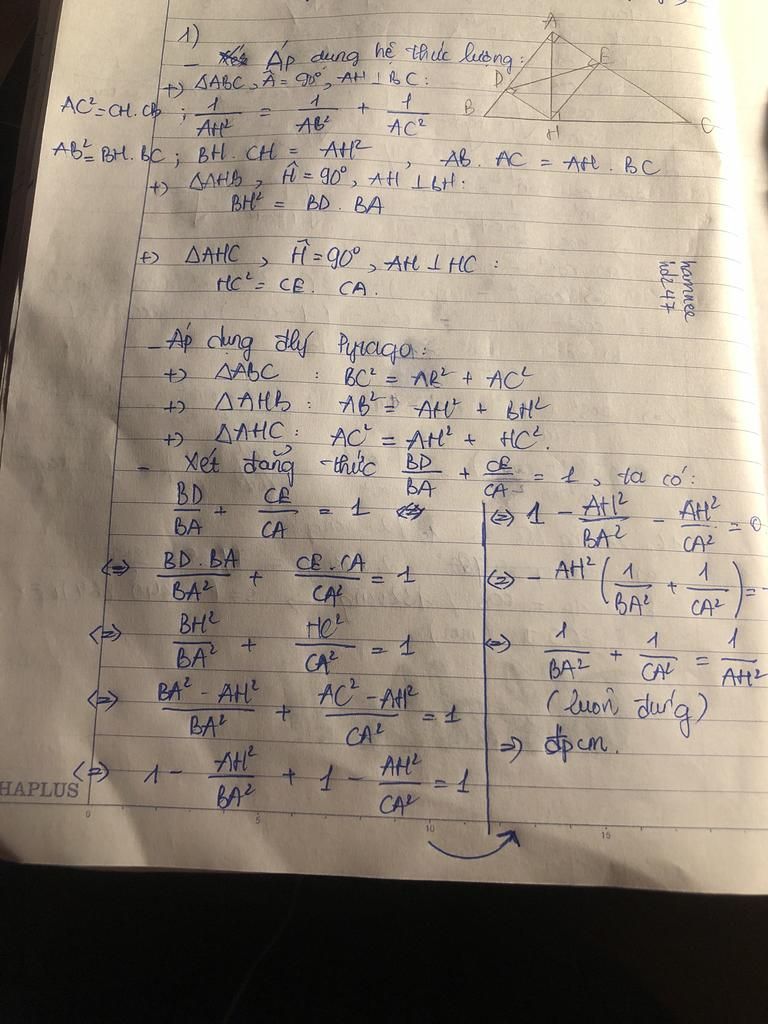 1)
- Áp dụng hệ thức lượng:
+) ΔABC, Â = 90°, AH ⊥ BC:
AC² = CH.CB ; 1/AH² = 1/AB² + 1/AC²
AB² = BH.BC ; BH.CH = AH² , AB.AC = AH.BC
+) ΔAHB, Ĥ = 90°, AH ⊥ BH:
BH² = BD.BA
+) ΔAHC, Ĥ = 90°, AH ⊥ HC:
HC² = CE.CA.
- Áp dụng đlý Pytago:
+) ΔABC : BC² = AB² + AC²
+) ΔAHB : AB² = AH² + BH²
+) ΔAHC : AC² = AH² + HC².
- Xét đẳng thức BD/BA + CE/CA = 1, ta có:
BD/BA + CE/CA = 1
<=> BD.BA/BA² + CE.CA/CA² = 1
<=> BH²/BA² + HC²/CA² = 1
<=> (BA² - AH²)/BA² + (AC² - AH²)/CA² = 1
<=> 1 - AH²/BA² + 1 - AH²/CA² = 1
<=> 1 - AH²/BA² - AH²/CA² = 0
<=> - AH² (1/BA² + 1/CA²) = -
<=> 1/BA² + 1/CA² = 1/AH²
(luôn đúng)
=> đpcm.
A
D
E
B
H
C
hdz47
HAPLUS
0 5 10 15